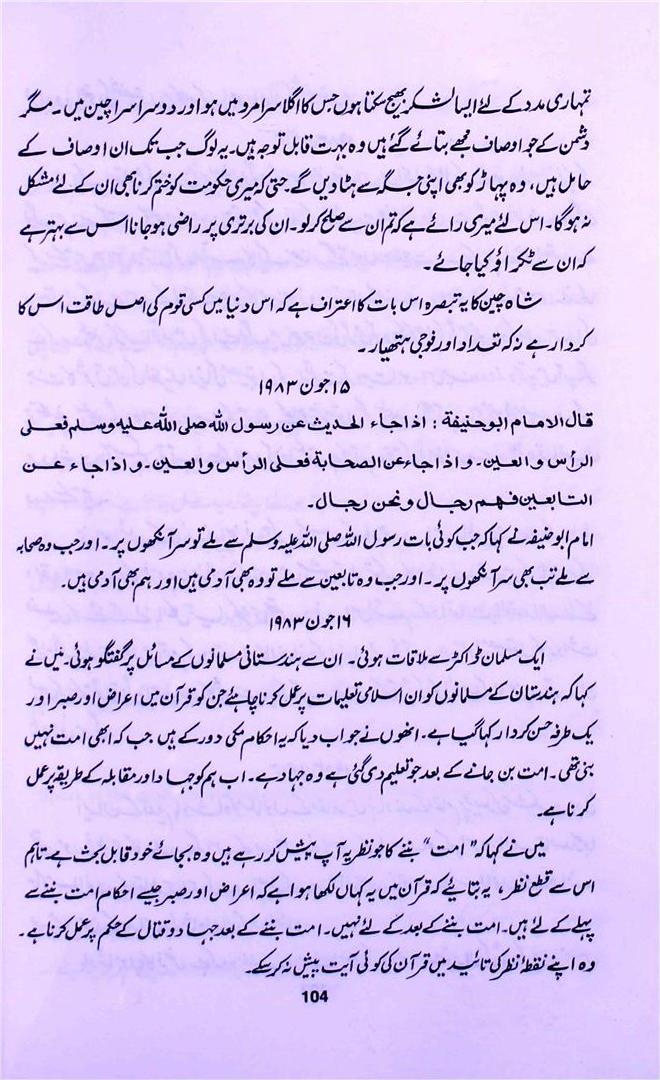 تمہاری مدد کے لئے ایسا لشکر بھیج سکتا ہوں جس کا اگلا سرا مرو میں ہو اور دوسرا سرا چین میں۔ مگر
دشمن کے جو اوصاف مجھے بتائے گئے ہیں وہ بہت قابل توجہ ہیں۔ یہ لوگ جب تک ان اوصاف کے
حامل ہیں، وہ پہاڑ کو بھی اپنی جگہ سے ہٹا دیں گے۔ حتی کہ میری حکومت کو ختم کرنا بھی ان کے لئے مشکل
نہ ہوگا۔ اس لئے میری رائے ہے کہ تم ان سے صلح کر لو۔ ان کی برتری پر راضی ہو جانا اس سے بہتر ہے
کہ ان سے ٹکراؤ کیا جائے۔
شاہ چین کا یہ تبصرہ اس بات کا اعتراف ہے کہ اس دنیا میں کسی قوم کی اصل طاقت اس کا
کردار ہے نہ کہ تعداد اور فوجی ہتھیار۔
۱۵ جون ۱۹۸۳
قال الامام ابوحنیفة : اذا جاء الحدیث عن رسول اللہ صلی اللہ علیہ وسلم فعلی
الرأس والعین۔ واذا جاء عن الصحابة فعلی الرأس والعین۔ واذا جاء عن
التابعین فهم رجال ونحن رجال۔
امام ابو حنیفہ نے کہا کہ جب کوئی بات رسول اللہ صلی اللہ علیہ وسلم سے ملے تو سر آنکھوں پر۔ اور جب وہ صحابہ
سے ملے تب بھی سر آنکھوں پر۔ اور جب وہ تابعین سے ملے تو وہ بھی آدمی ہیں اور ہم بھی آدمی ہیں۔
۱۶ جون ۱۹۸۳
ایک مسلمان ڈاکٹر سے ملاقات ہوئی۔ ان سے ہندستانی مسلمانوں کے مسائل پر گفتگو ہوئی۔ میں نے
کہا کہ ہندستان کے مسلمانوں کو ان اسلامی تعلیمات پر عمل کرنا چاہئے جن کو قرآن میں اعراض اور صبر اور
یک طرفہ حسن کردار کہا گیا ہے۔ انھوں نے جواب دیا کہ یہ احکام مکی دور کے ہیں جب کہ ابھی امت نہیں
بنی تھی۔ امت بن جانے کے بعد جو تعلیم دی گئی ہے وہ جہاد ہے۔ اب ہم کو جہاد اور مقابلہ کے طریقہ پر عمل
کرنا ہے۔
میں نے کہا کہ "امت" بننے کا جو نظریہ آپ پیش کر رہے ہیں وہ بجائے خود قابل بحث ہے۔ تاہم
اس سے قطع نظر، یہ بتائیے کہ قرآن میں یہ کہاں لکھا ہوا ہے کہ اعراض اور صبر جیسے احکام امت بننے سے
پہلے کے لئے ہیں۔ امت بننے کے بعد کے لئے نہیں۔ امت بننے کے بعد جہاد و قتال کے حکم پر عمل کرنا ہے۔
وہ اپنے نقطۂ نظر کی تائید میں قرآن کی کوئی آیت پیش نہ کر سکے۔
104